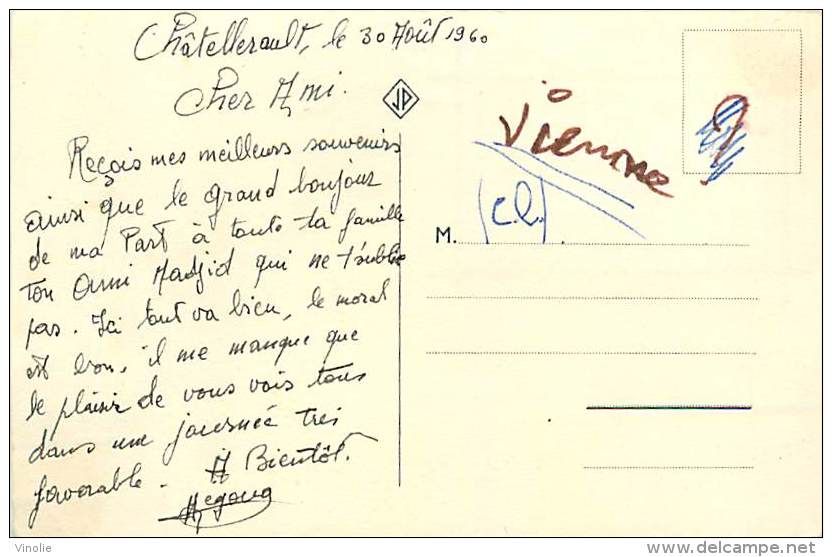 Châtellerault, le 30 Août 1960
Cher Ami.
JD
Reçois mes meilleurs souvenirs
ainsi que le grand bonjour
de ma Part à toute ta famille
Ton Ami Madjid qui ne t'oublie
pas. Ici tout va bien, le moral
est bon, il me manque que
le plaisir de vous vois tous
dans une journée très
favorable. A Bientôt.
Vienne
(C.L.)
M.
Vinolie
www.delcampe.net